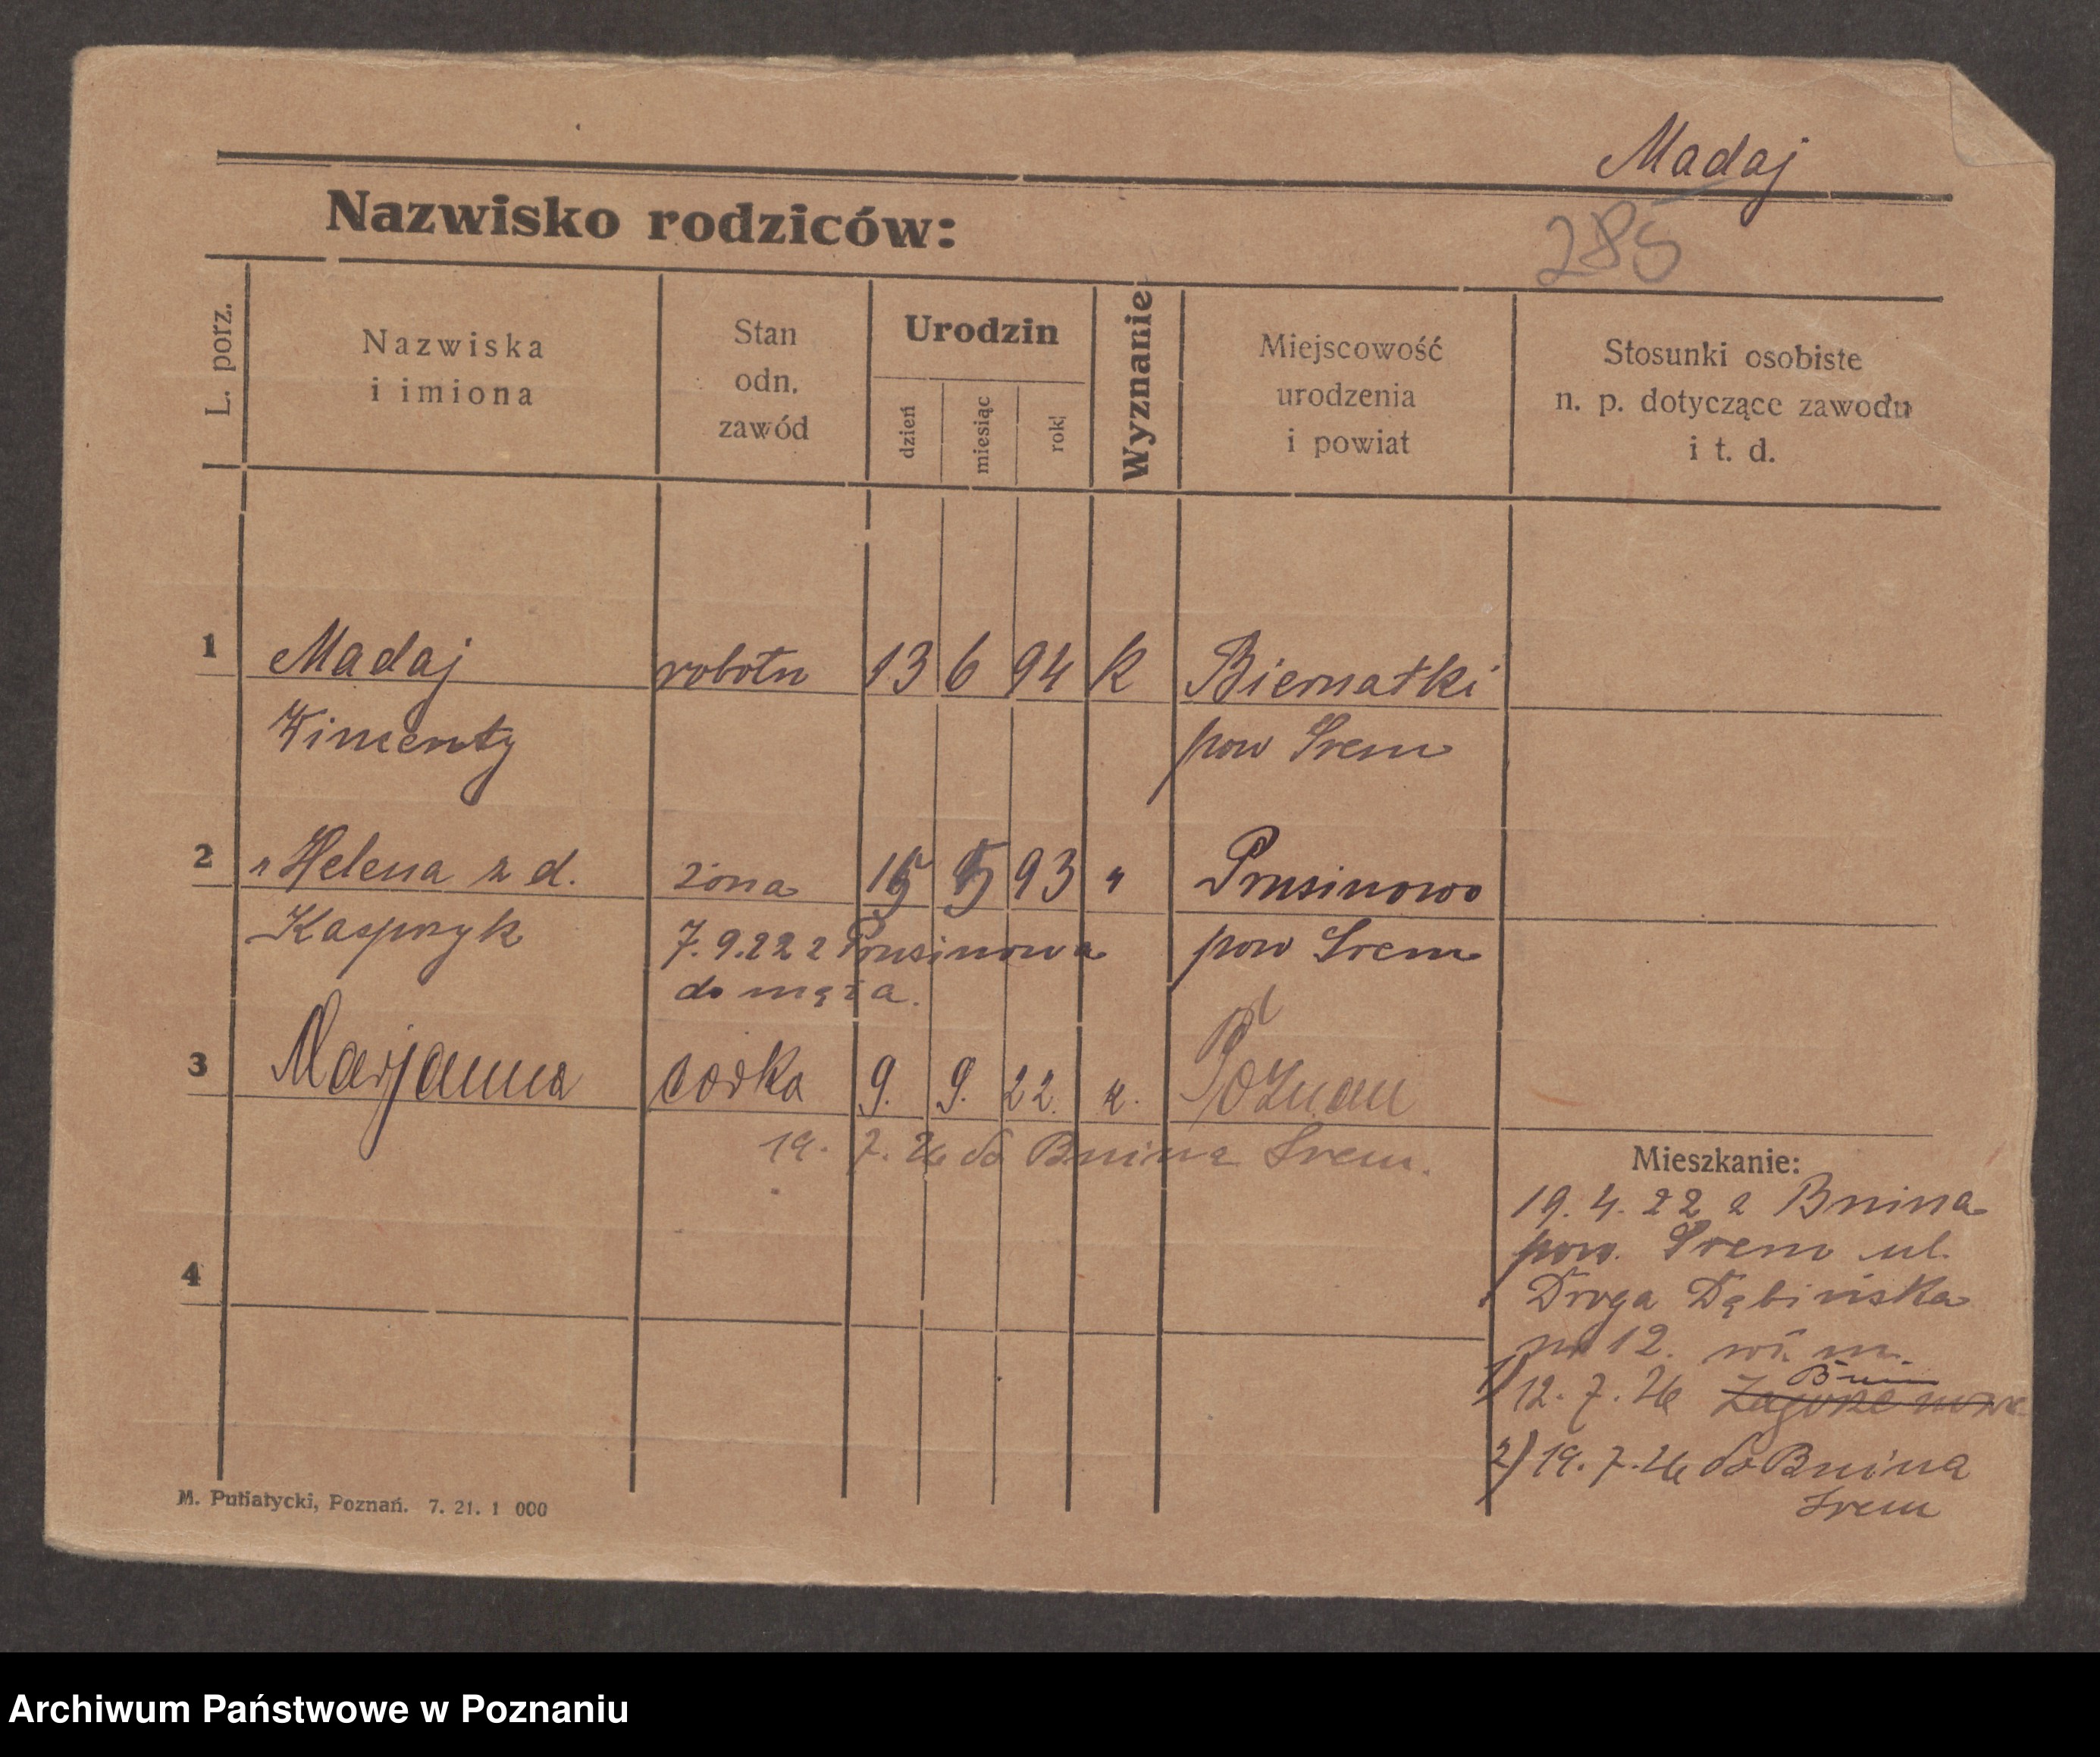 Madaj
Nazwisko rodziców:
285
L. porz.
Nazwiska
i imiona
Stan
odn.
zawód
Urodzin
dzień
miesiąc
rok
Wyznanie
Miejscowość
urodzenia
i powiat
Stosunki osobiste
n. p. dotyczące zawodu
i t. d.
1 Madaj robotn 13 6 94 k Biernatki
Wincenty pow Śrem
2 " Helena z d. żona 15 5 93 " Prusinowo
Kasprzyk 7.9.22 z Prusinowa pow Śrem
do męża.
3 Marjanna córka 9. 9. 22. k. Poznań
19. 7. 26 do Bnina Śrem.
4
Mieszkanie:
19. 4. 22 z Bnina
pow. Śrem ul.
Droga Dębińska
nr 12. m.
1) 12. 7. 26 Bnin
2) 19. 7. 26 do Bnina
Śrem
M. Putiatycki, Poznań. 7. 21. 1 000
Archiwum Państwowe w Poznaniu